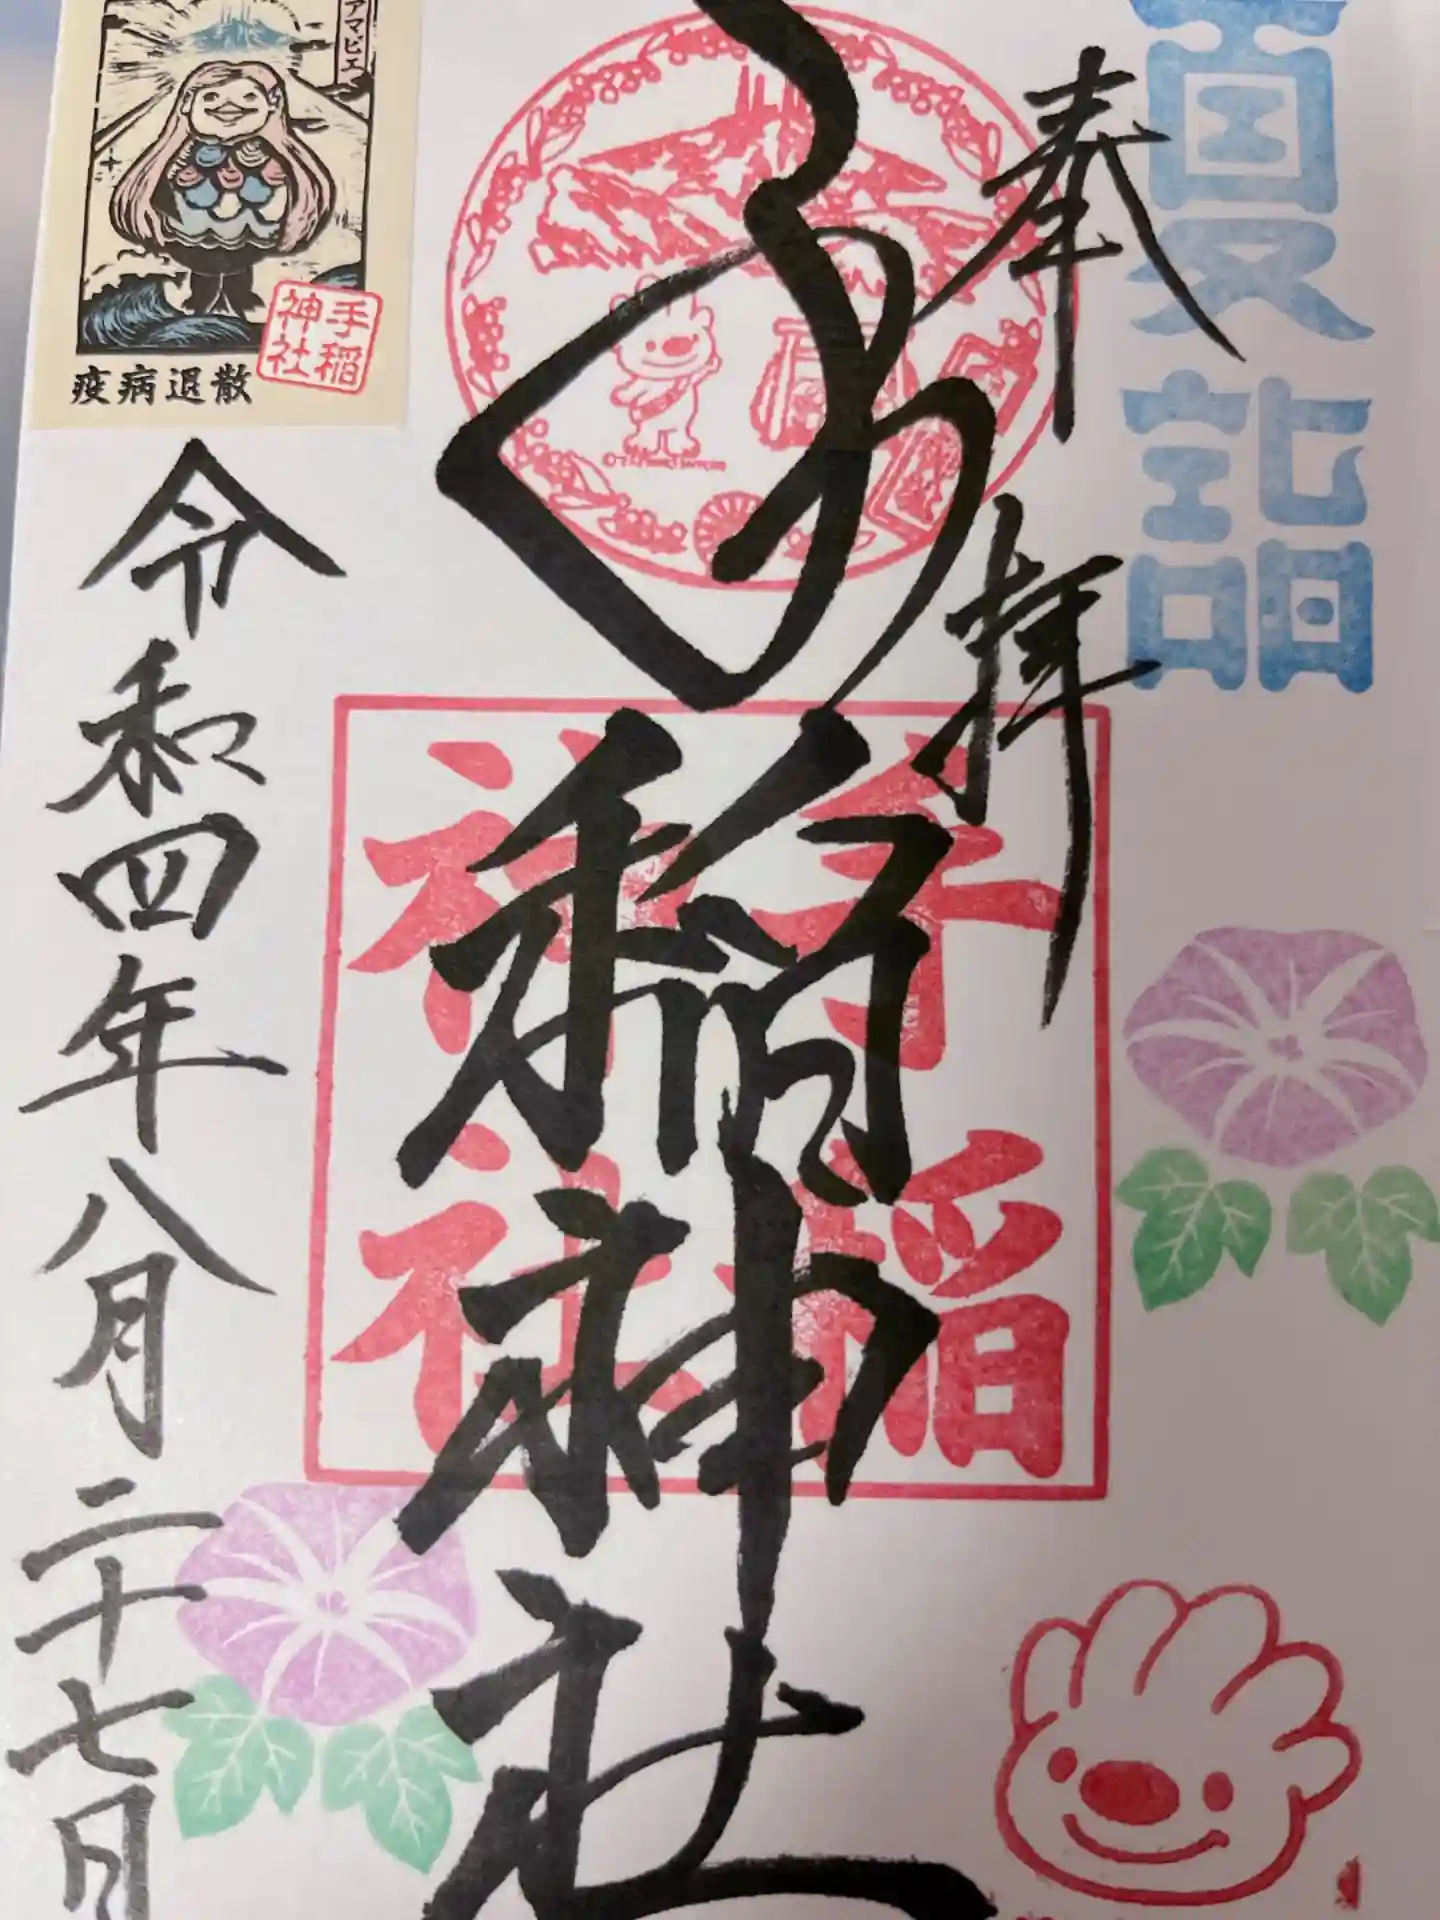 夏詣
奉拝
手稲神社
手稲
神社
令和四年八月二十七日
アマビエ
手稲
神社
疫病退散